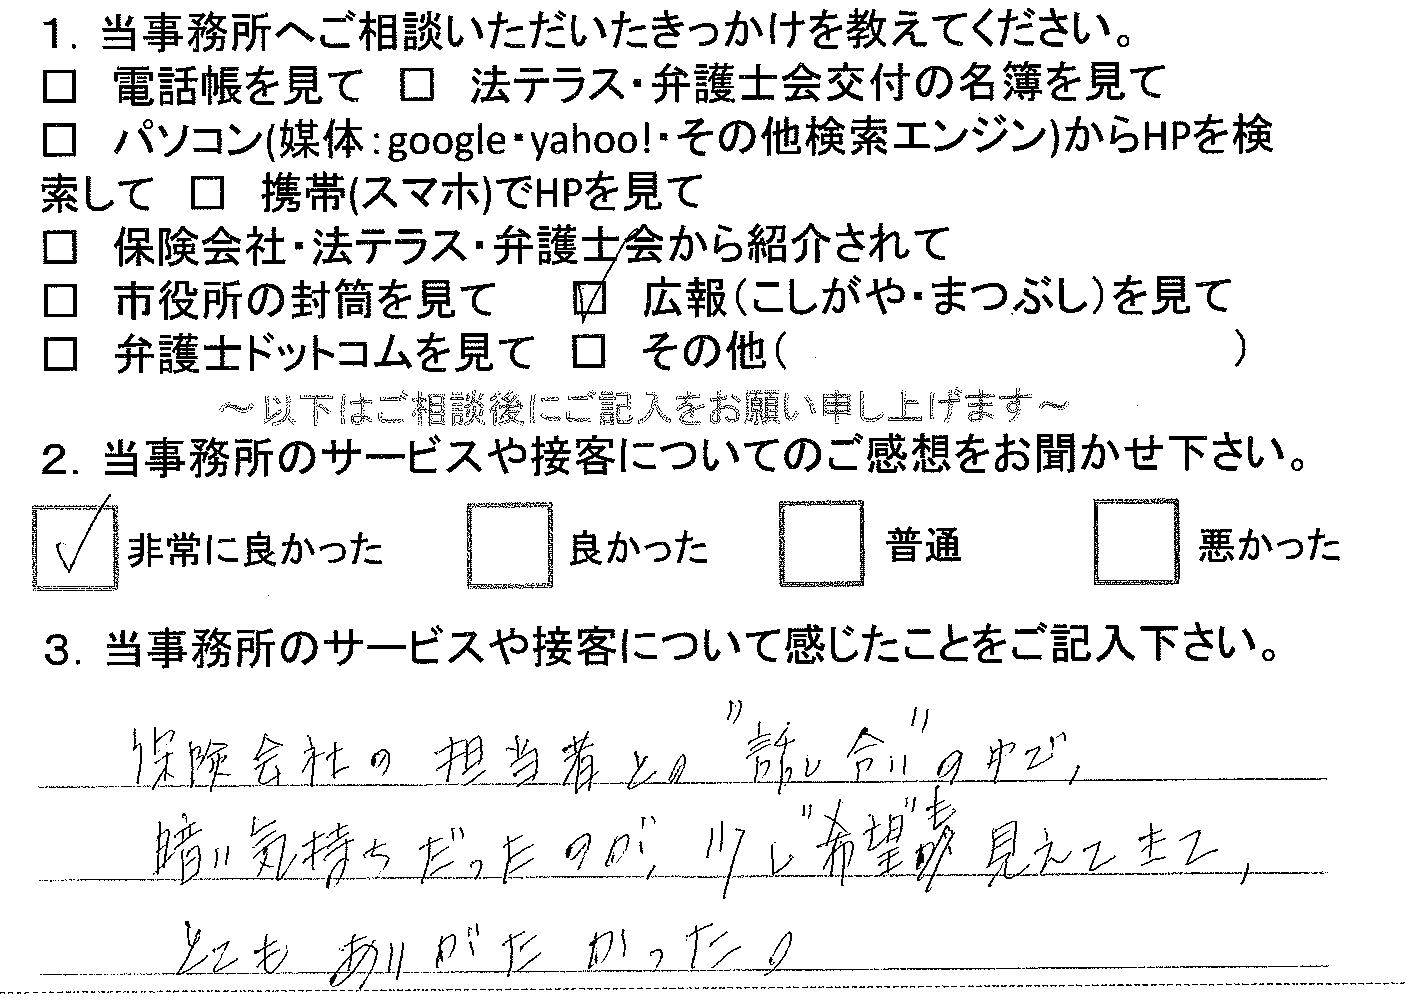 1. 当事務所へご相談いただいたきっかけを教えてください。
□ 電話帳を見て □ 法テラス・弁護士会交付の名簿を見て
□ パソコン(媒体:google・yahoo!・その他検索エンジン)からHPを検
索して □ 携帯(スマホ)でHPを見て
□ 保険会社・法テラス・弁護士会から紹介されて
□ 市役所の封筒を見て ☑ 広報(こしがや・まつぶし)を見て
□ 弁護士ドットコムを見て □ その他( )
～以下はご相談後にご記入をお願い申し上げます～
2. 当事務所のサービスや接客についてのご感想をお聞かせ下さい。
☑ 非常に良かった □ 良かった □ 普通 □ 悪かった
3. 当事務所のサービスや接客について感じたことをご記入下さい。
保険会社の担当者との"話し合い"の中で、
暗い気持ちだったのが、少し"希望"も見えてきて、
とてもありがたかった。